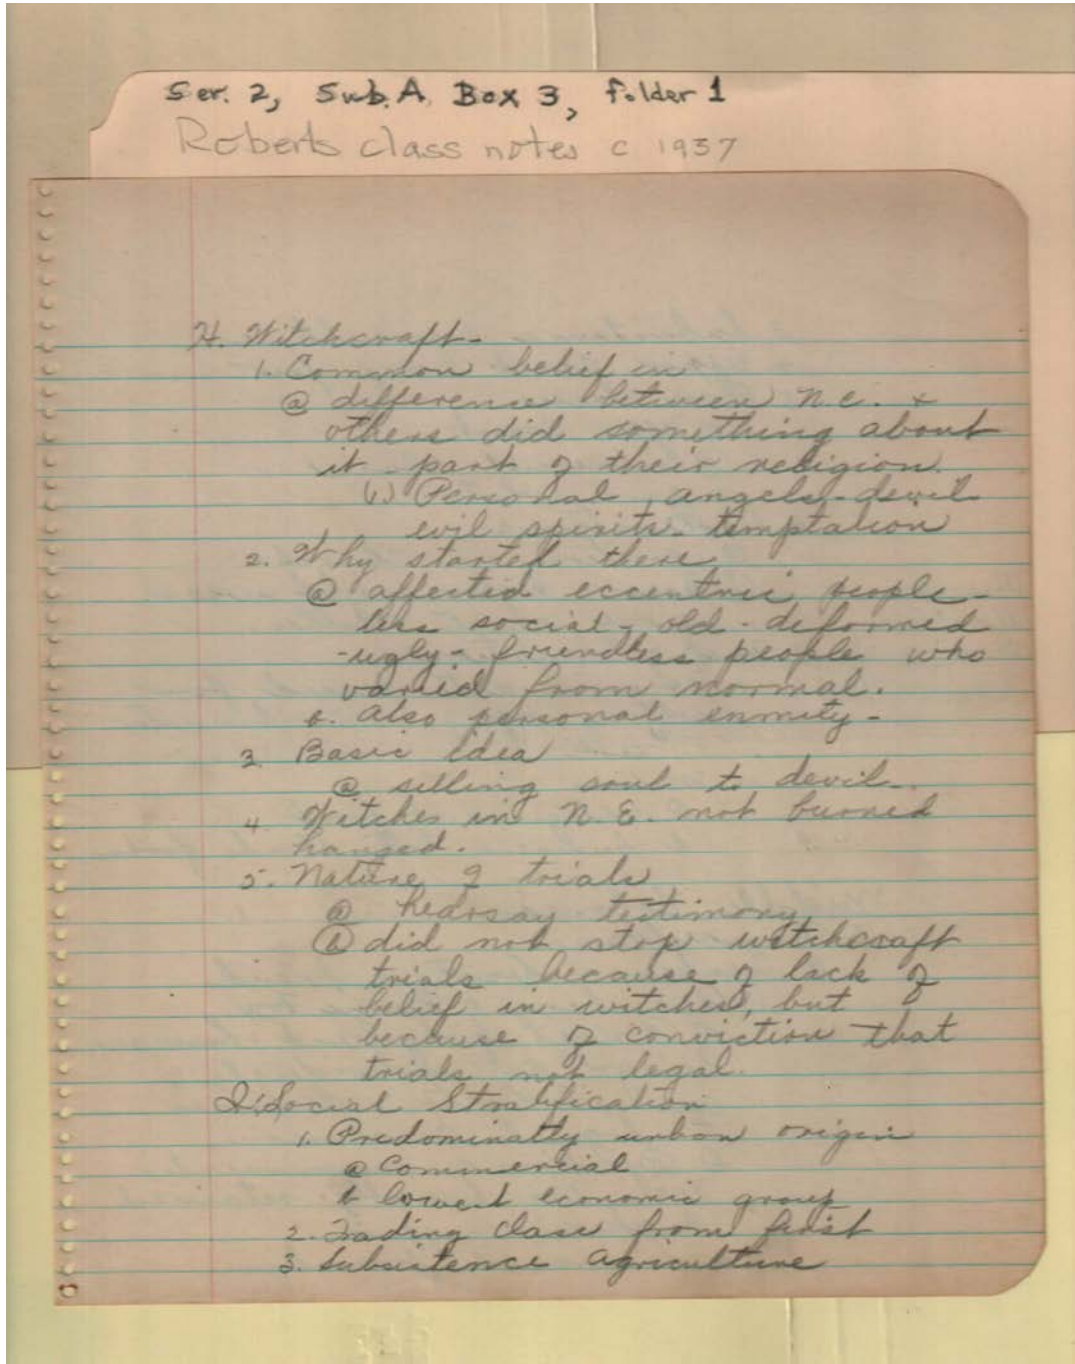 Ser. 2, Sub. A, Box 3, folder 1
Roberts class notes c 1937
H. Witchcraft-
1. Common belief in
ⓐ difference between N.C. +
others did something about
it - part of their religion.
(1) Personal, angels - devil
evil spirits - temptation
2. Why started there
ⓐ affected eccentric people -
less social - old - deformed
- ugly - friendless people who
varied from normal.
b. also personal enmity -
3. Basic idea
ⓐ selling soul to devil.
4. Witches in N.E. not burned
hanged.
5. Nature of trials
ⓐ hearsay testimony
ⓑ did not stop witchcraft
trials because of lack of
belief in witches, but
because of conviction that
trials not legal.
I. Social Stratification
1. Predominatly urban origin
ⓐ Commercial
b lowest economic group
2. Trading class from first
3. Subsistence agriculture